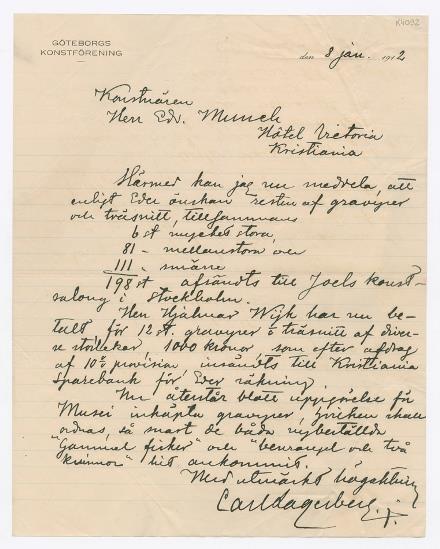 K4092
GÖTEBORGS
KONSTFÖRENING
den 8 jan. 1912
Konstnären
Herr Edv. Munch
Hôtel Victoria
Kristiania
Härmed kan jag nu meddela, att
enligt Eder önskan resten af gravyrer
och träsnitt, tillsammans
6 st mycket stora,
81 - mellanstora och
111 - smärre
198 st afsändts till Joels konst-
salong i Stockholm.
Herr Hjalmar Wijk har nu be-
talt för 12 st. gravyrer o träsnitt af diver-
se storlekar 1000 kronor som efter afdrag
af 10% provision insändts till Kristiania
Sparebank för Eder räkning.
Nu återstår blott uppgörelse för
Musei inköpta gravyrer, hvilken skall
ordnas, så snart de båda nybeställda
"Gammal fisker" och "benrangel och två
kvinnor" hit ankommit.
Med utmärkt högaktning
Carl Lagerberg.